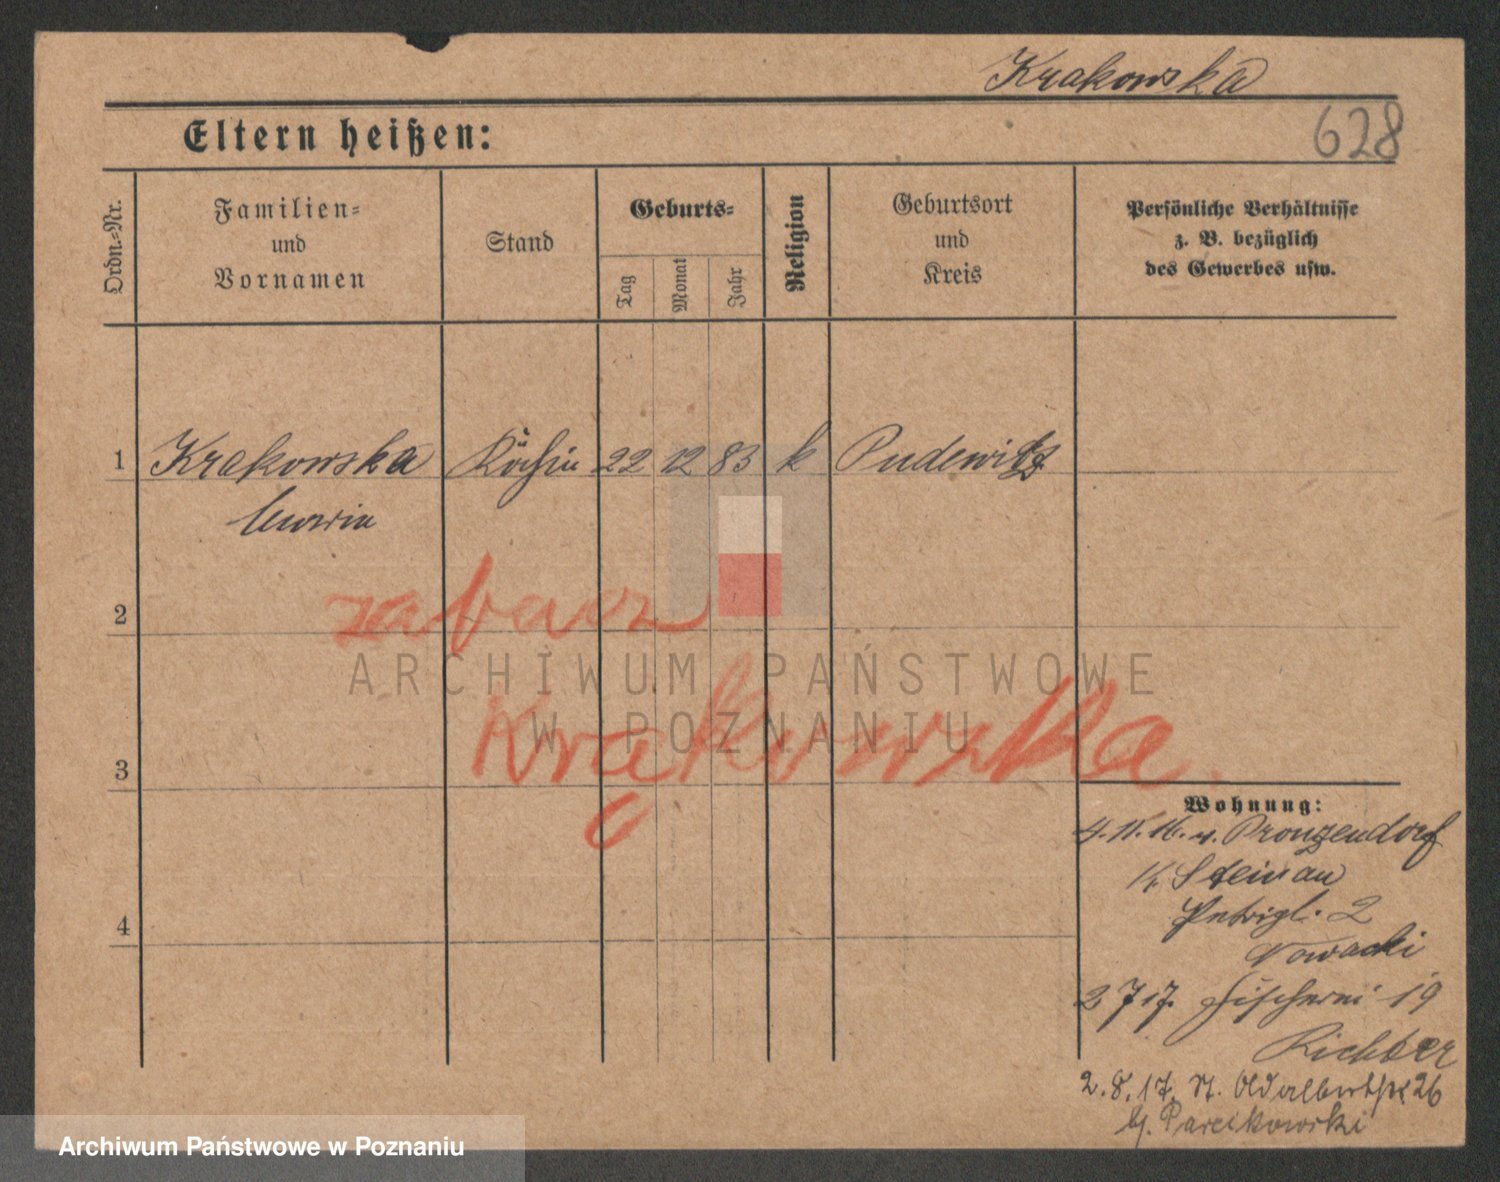 Krakowska
628
Eltern heißen:
Ordn.-Nr.
Familien-
und
Vornamen
Stand
Geburts-
Tag
Monat
Jahr
Religion
Geburtsort
und
Kreis
Persönliche Verhältnisse
z. B. bezüglich
des Gewerbes usw.
1
Krakowska
Köchin
22
12
83
k
Pudewitz
2
zobacz
ARCHIWUM PAŃSTWOWE
W POZNANIU
Krąkowska
3
4
Wohnung:
4.11.16. v. Pronzendorf
Steinau
2
Nowacki
2 7 17. Fischerei 19
Richter
2.8.17. 26
Archiwum Państwowe w Poznaniu